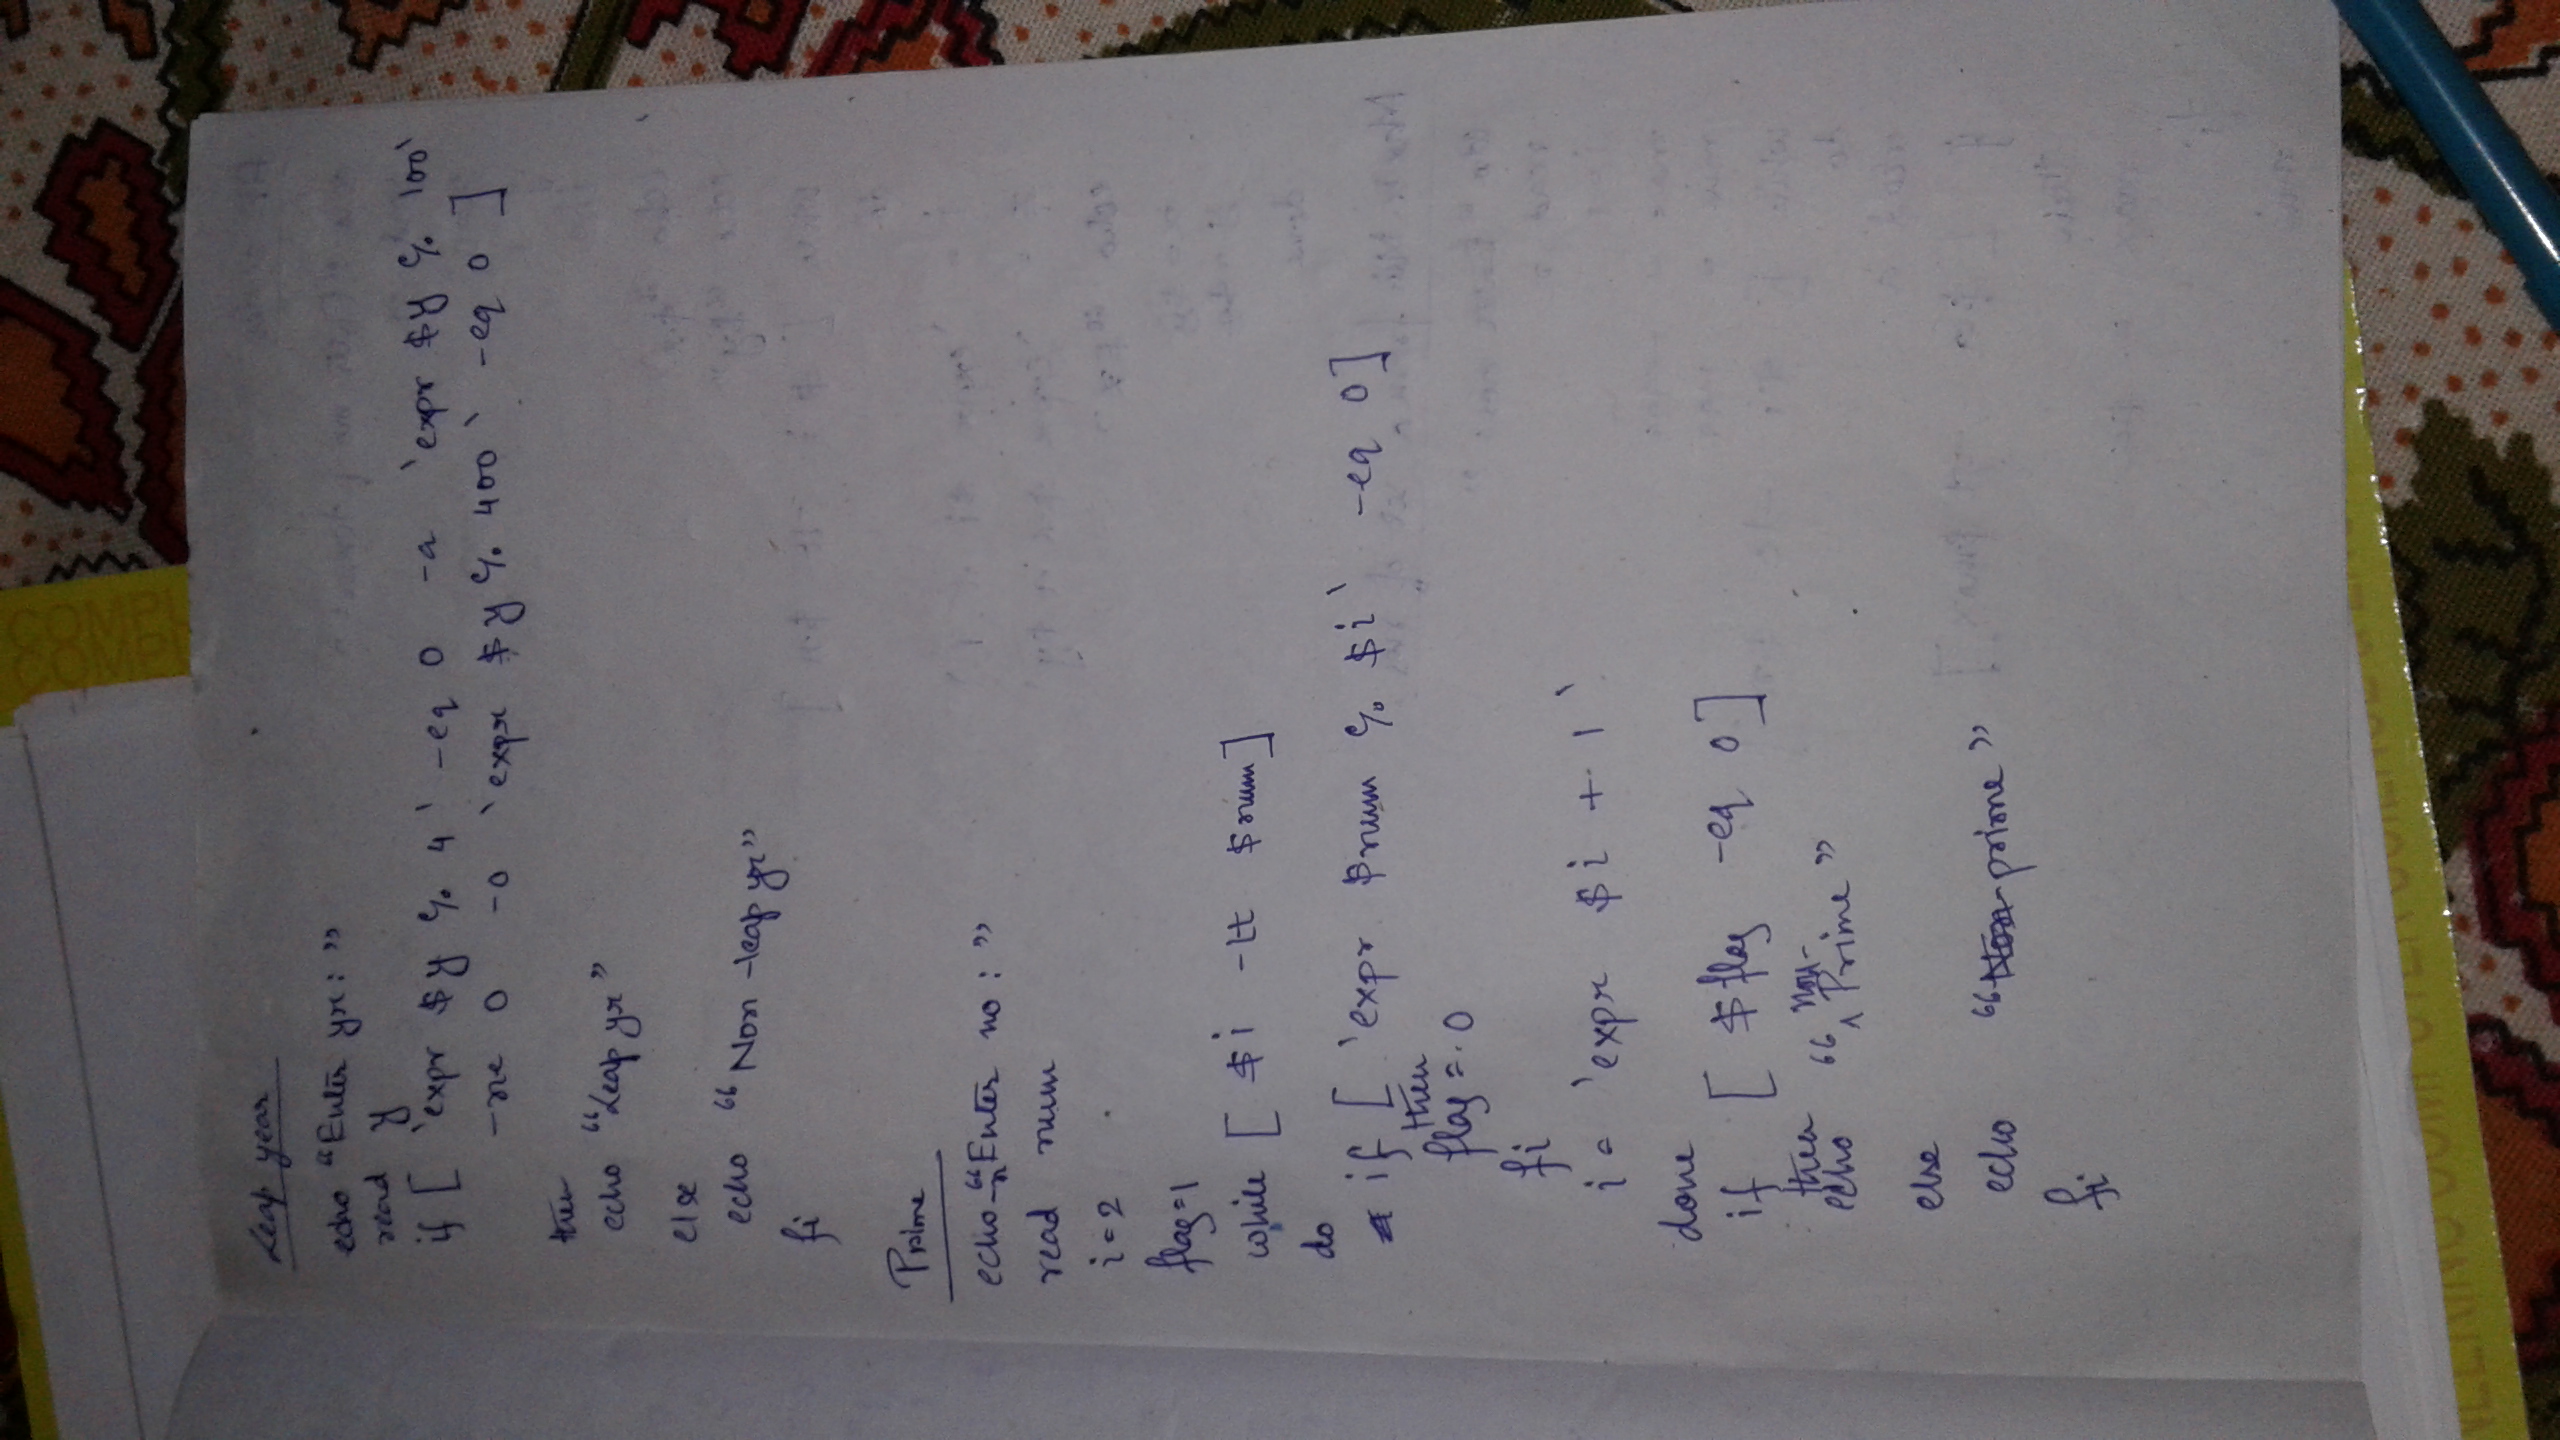 COMPU
COMP
Leap year
echo "Enter yr: "
read y
if [ `expr $y % 4` -eq 0 -a `expr $y % 100`
-ne 0 -o `expr $y % 400` -eq 0 ]
then
echo "Leap yr"
else
echo "Non-leap yr"
fi
Prime
echo -n "Enter no: "
read num
i=2
flag=1
while [ $i -lt $num]
do
if [ `expr $num % $i` -eq 0]
then
flag = 0
fi
i = `expr $i + 1`
done
if [ $flag -eq 0]
then
echo "non-Prime"
else
echo "prime"
fi
NEERING COMPUTER SCIENCE